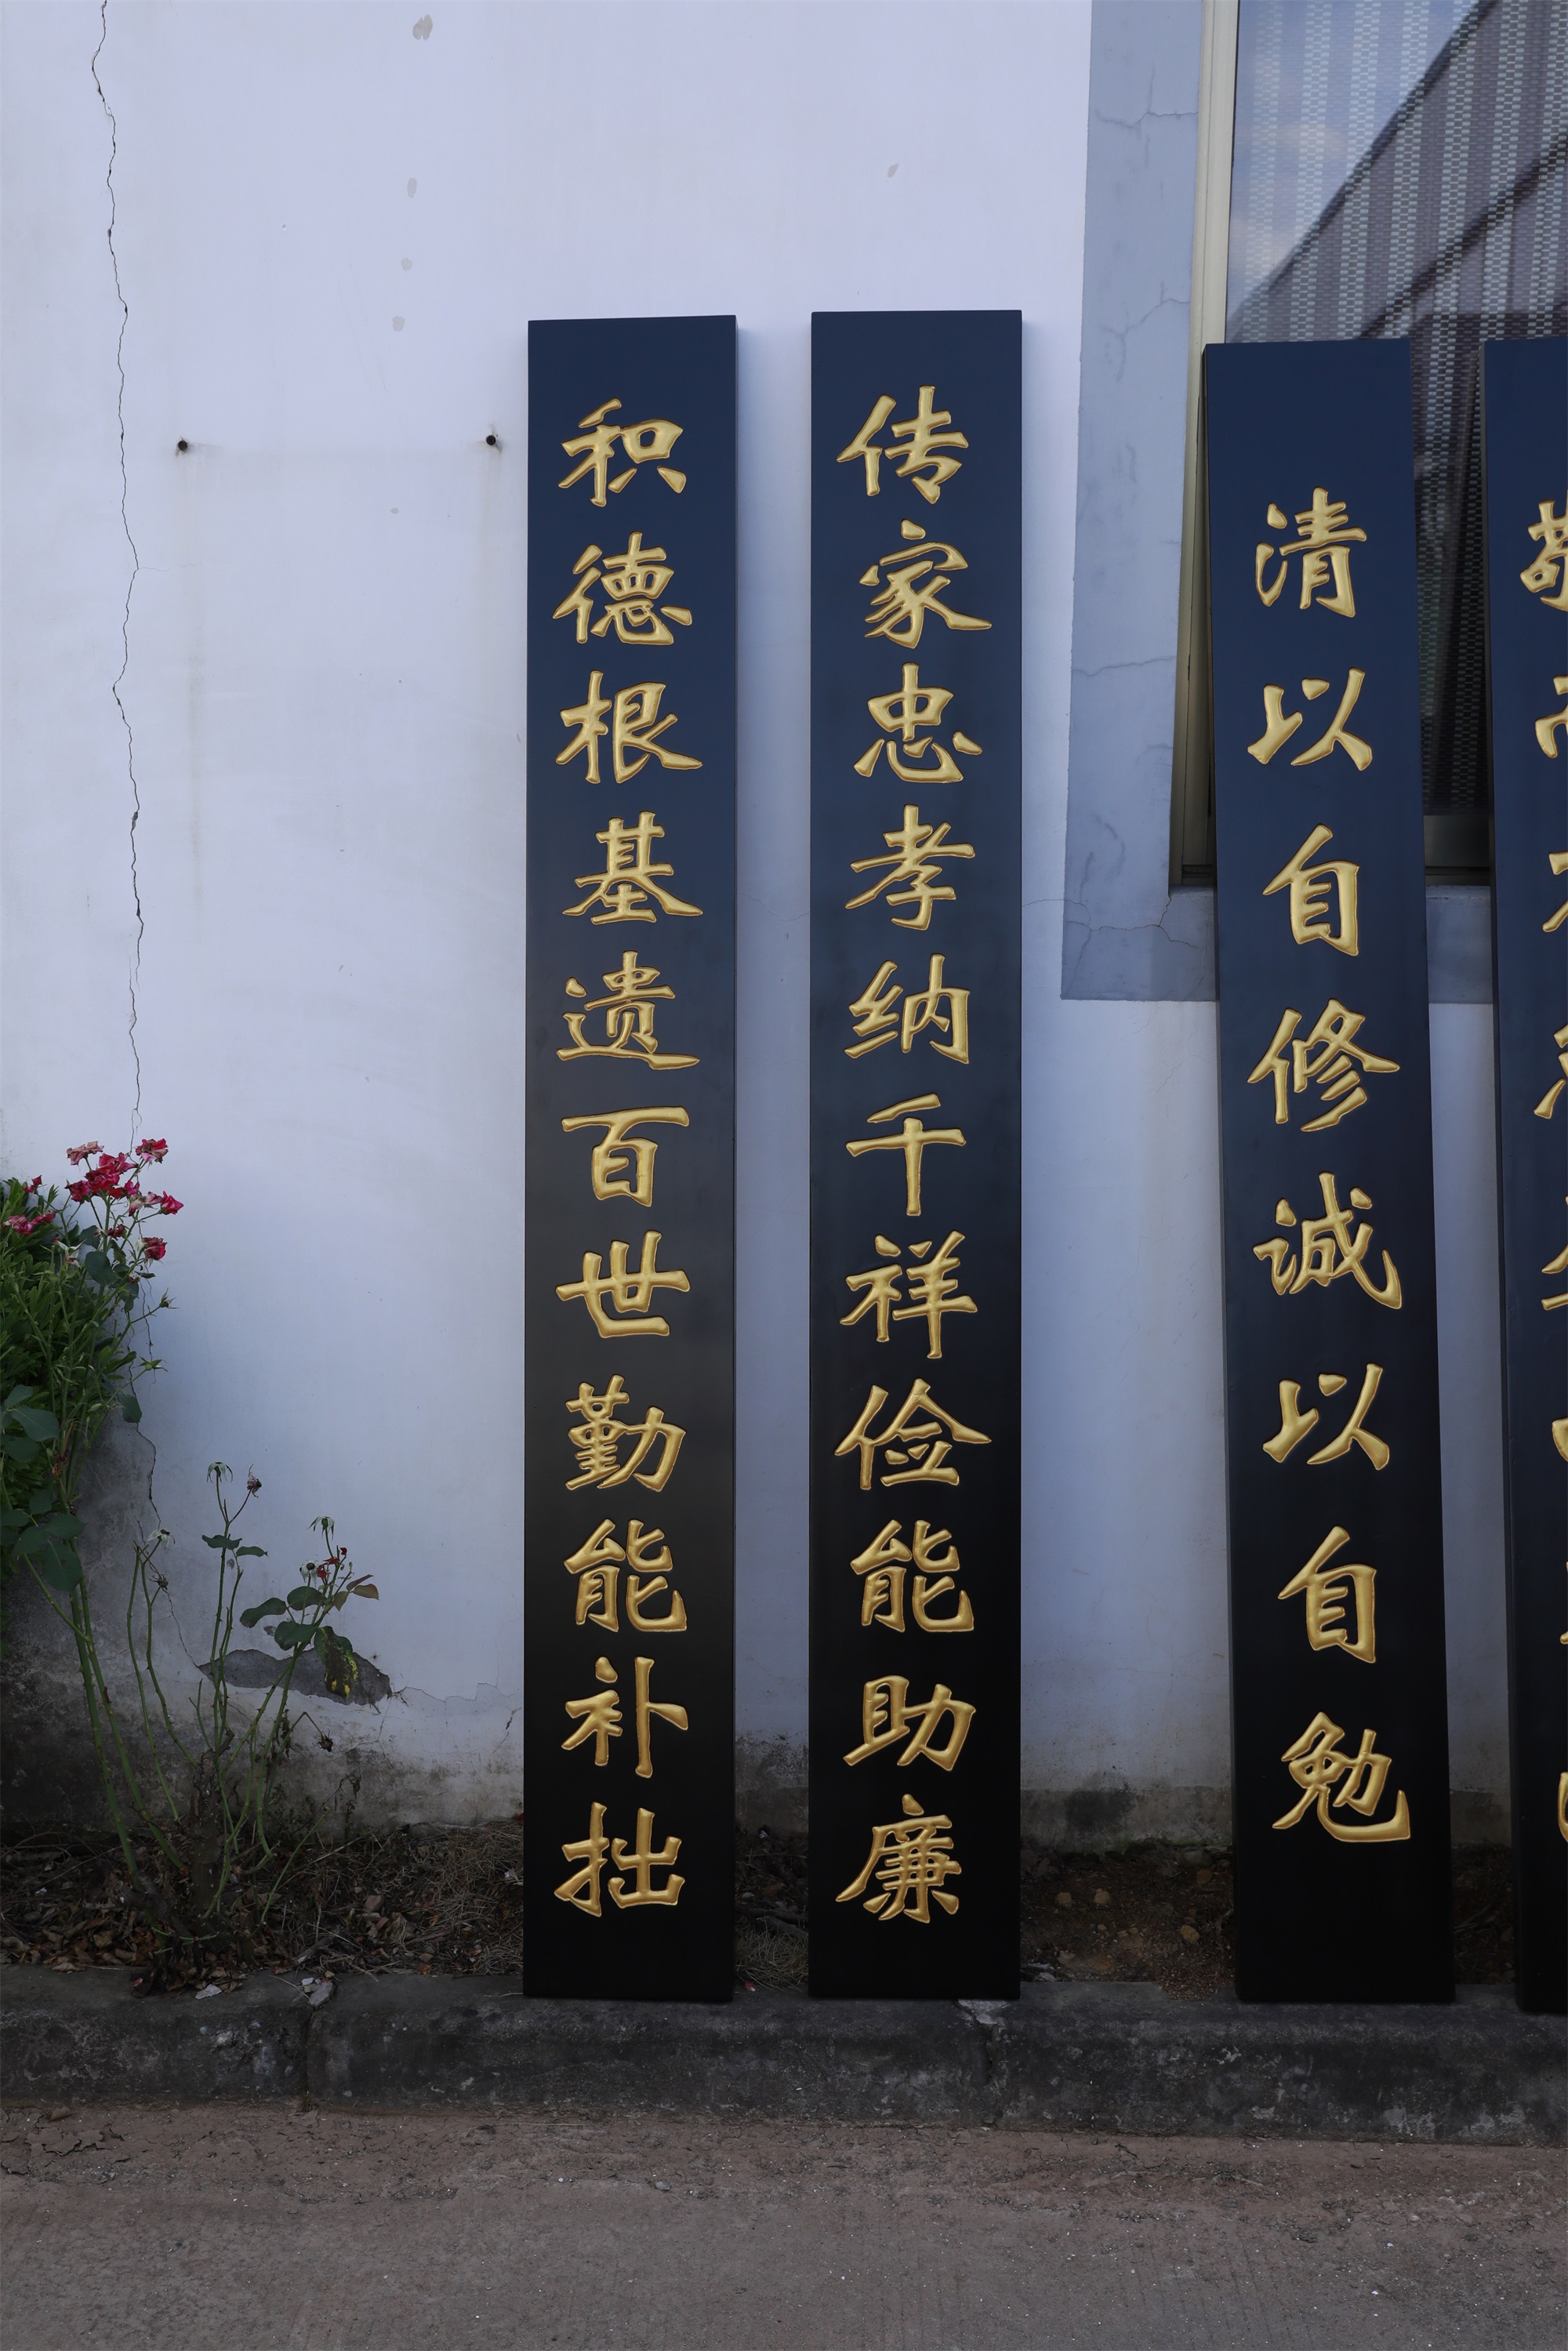 积德根基遗百世勤能补拙
传家忠孝纳千祥俭能助廉
清以自修诚以自勉